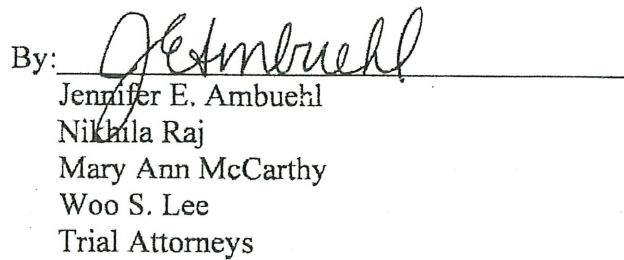 By: JEAmbuehl
Jennifer E. Ambuehl
Nikhila Raj
Mary Ann McCarthy
Woo S. Lee
Trial Attorneys